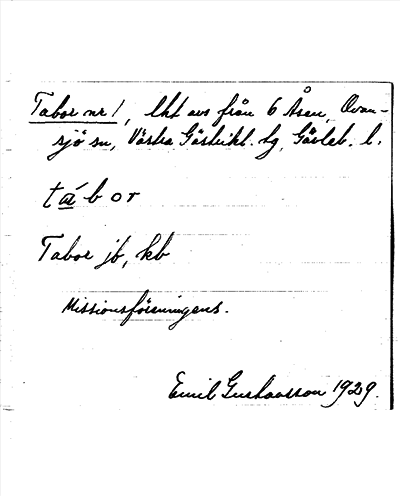 Tabor nr 1, lht avs från 6 Åsen, Ovan-
sjö sn, Västra Gästrikl. tg, Gävleb. l.
tábor
Tabor jb, kb
Missionsföreningens.
Emil Gustavsson 1929.